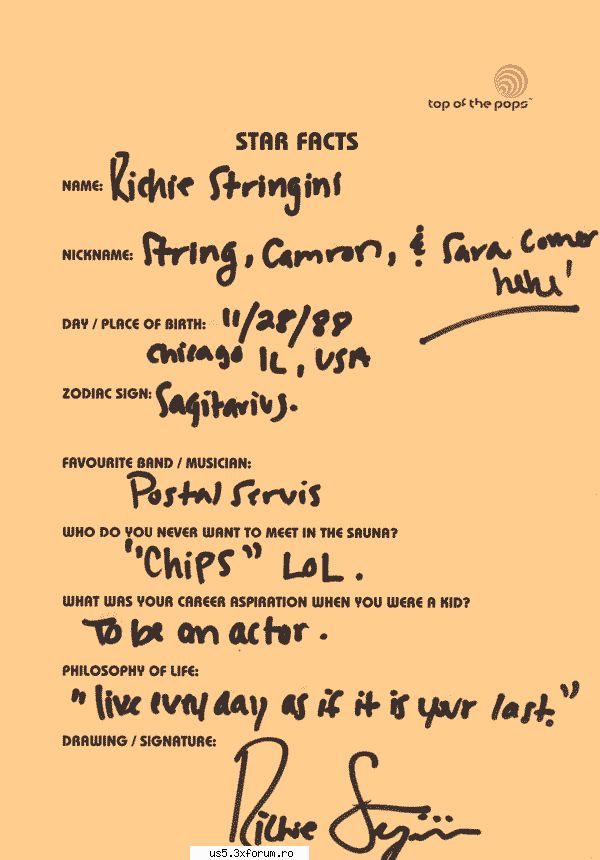 top of the pops™
STAR FACTS
NAME: Richie Stringini
NICKNAME: String, Camron, & Sara Comer
hehe'
DAY / PLACE OF BIRTH: 11/28/88
Chicago IL, USA
ZODIAC SIGN: Sagitarius.
FAVOURITE BAND / MUSICIAN:
Postal Servis
WHO DO YOU NEVER WANT TO MEET IN THE SAUNA?
"Chips" LOL.
WHAT WAS YOUR CAREER ASPIRATION WHEN YOU WERE A KID?
To be an actor.
PHILOSOPHY OF LIFE:
"live every day as if it is your last."
DRAWING / SIGNATURE:
Richie
us5.3xforum.ro